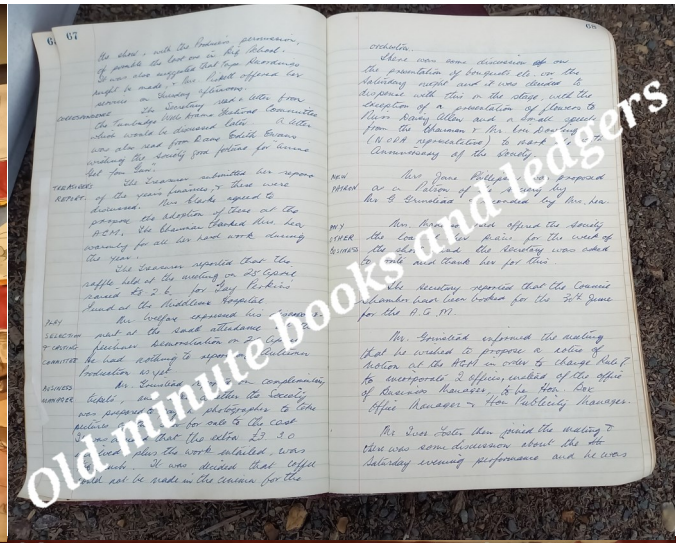 67
the show, with the Producer's permission,
of possible the last one in Big School.
It was also suggested that Tape Recordings
might be made, & Mrs. offered her
services on Tuesday afternoons.
CORRESPONDENCE The Secretary read a letter from
the Tunbridge Wells Drama Festival Committee
which would be discussed later. A letter
was also read from Dame Edith Evans
wishing the Society good fortune for
TREASURERS The Treasurer submitted her report
REPORT. of the year's finances, & these were
discussed. Mrs Clarke agreed to
propose the adoption of these at the
AGM. The Chairman thanked Mrs. Lea
warmly for all her hard work during
the year.
The Treasurer reported that the
raffle held at the meeting on 25 April
raised for Gay Perkins
Fund at the Middlesex Hospital.
PLAY Mr. Welfare expressed his
SELECTION ment at the small attendance
& CRITIC demonstration on 2 April
COMMITTEE He had nothing to report
Production as yet.
BUSINESS Mr. Grinstead on complimentary
MANAGER tickets, and whether the Society
was prepared photographer to take
pictures for sale to the cast
that the extra £3.3.0
plus the work entailed, was
much. It was decided that coffee
could not be made in the cinema for the
68
orchestra.
There was some discussion on
the presentation of bouquets etc. on the
Saturday night and it was decided to
dispense with this on the stage, with the
exception of a presentation of flowers to
Miss Daisy Allen and a small speech
from the Chairman & Mr.
(NODA representative) to mark
Anniversary of the Society.
NEW Mrs. June Phillips was proposed
PATRON as a Patron of the Society by
Mr G Grinstead seconded by Mrs. Lea.
ANY Mrs. offered the Society
OTHER the loan of her for the week of
BUSINESS the show and the Secretary was asked
to write and thank her for this.
The Secretary reported that the Council
Chamber had been booked for the 30th June
for the A.G.M.
Mr. Grinstead informed the meeting
that he wished to propose a notice of
Motion at the AGM in order to change Rule 7
to incorporate 2 offices instead of the office
of Business Manager, to be Hon. Box
Office Manager & Hon Publicity Manager.
Mr Ivor Foster then joined the meeting &
there was some discussion about the
Saturday evening performance and he was
Old minute books and ledgers